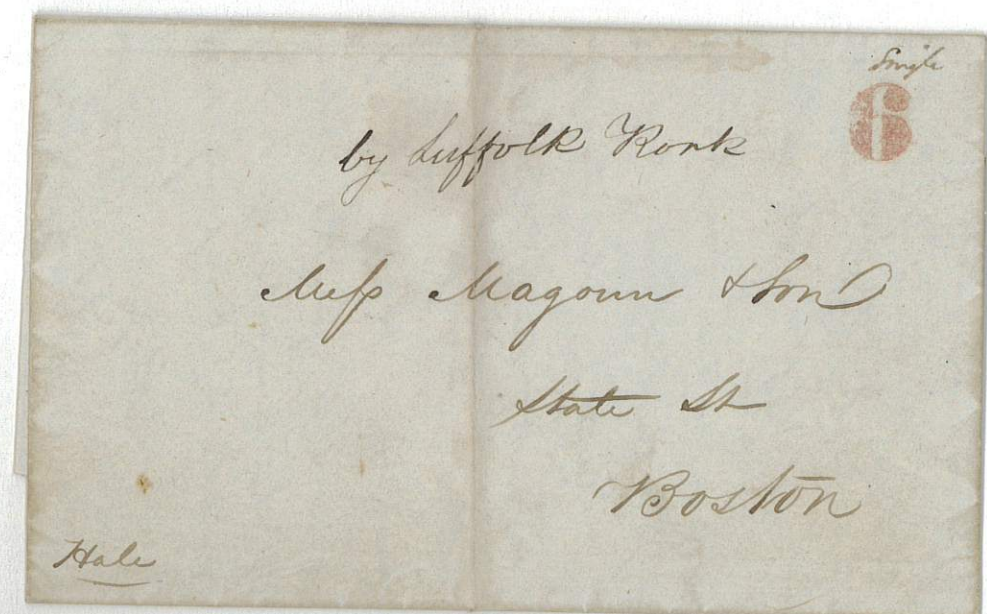 Single
6
by Suffolk Bank
Mess Magoun & Son
State St
Boston
Hale